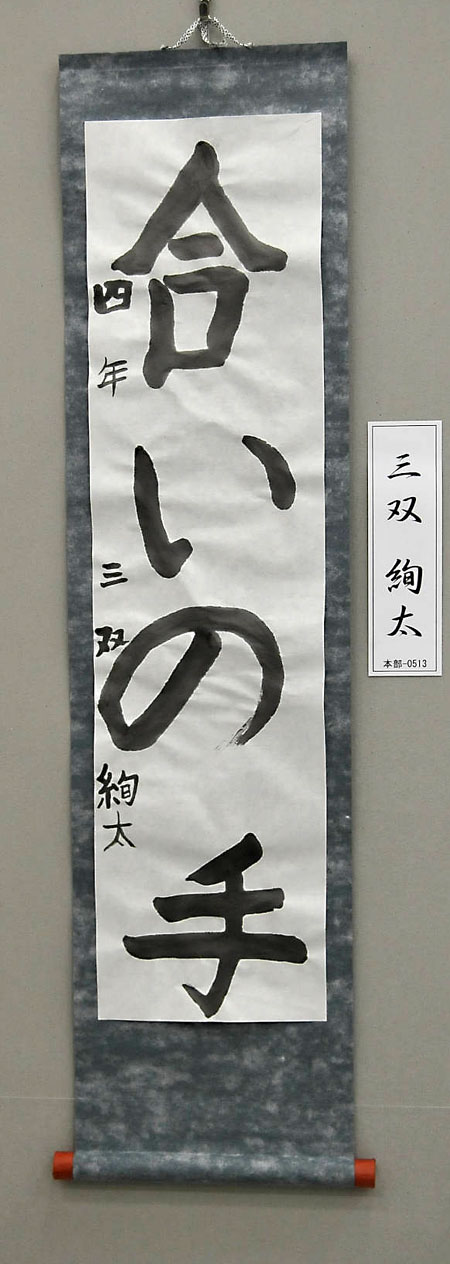 合いの手
四年 三双 絢太
三双 絢太
本部-0513